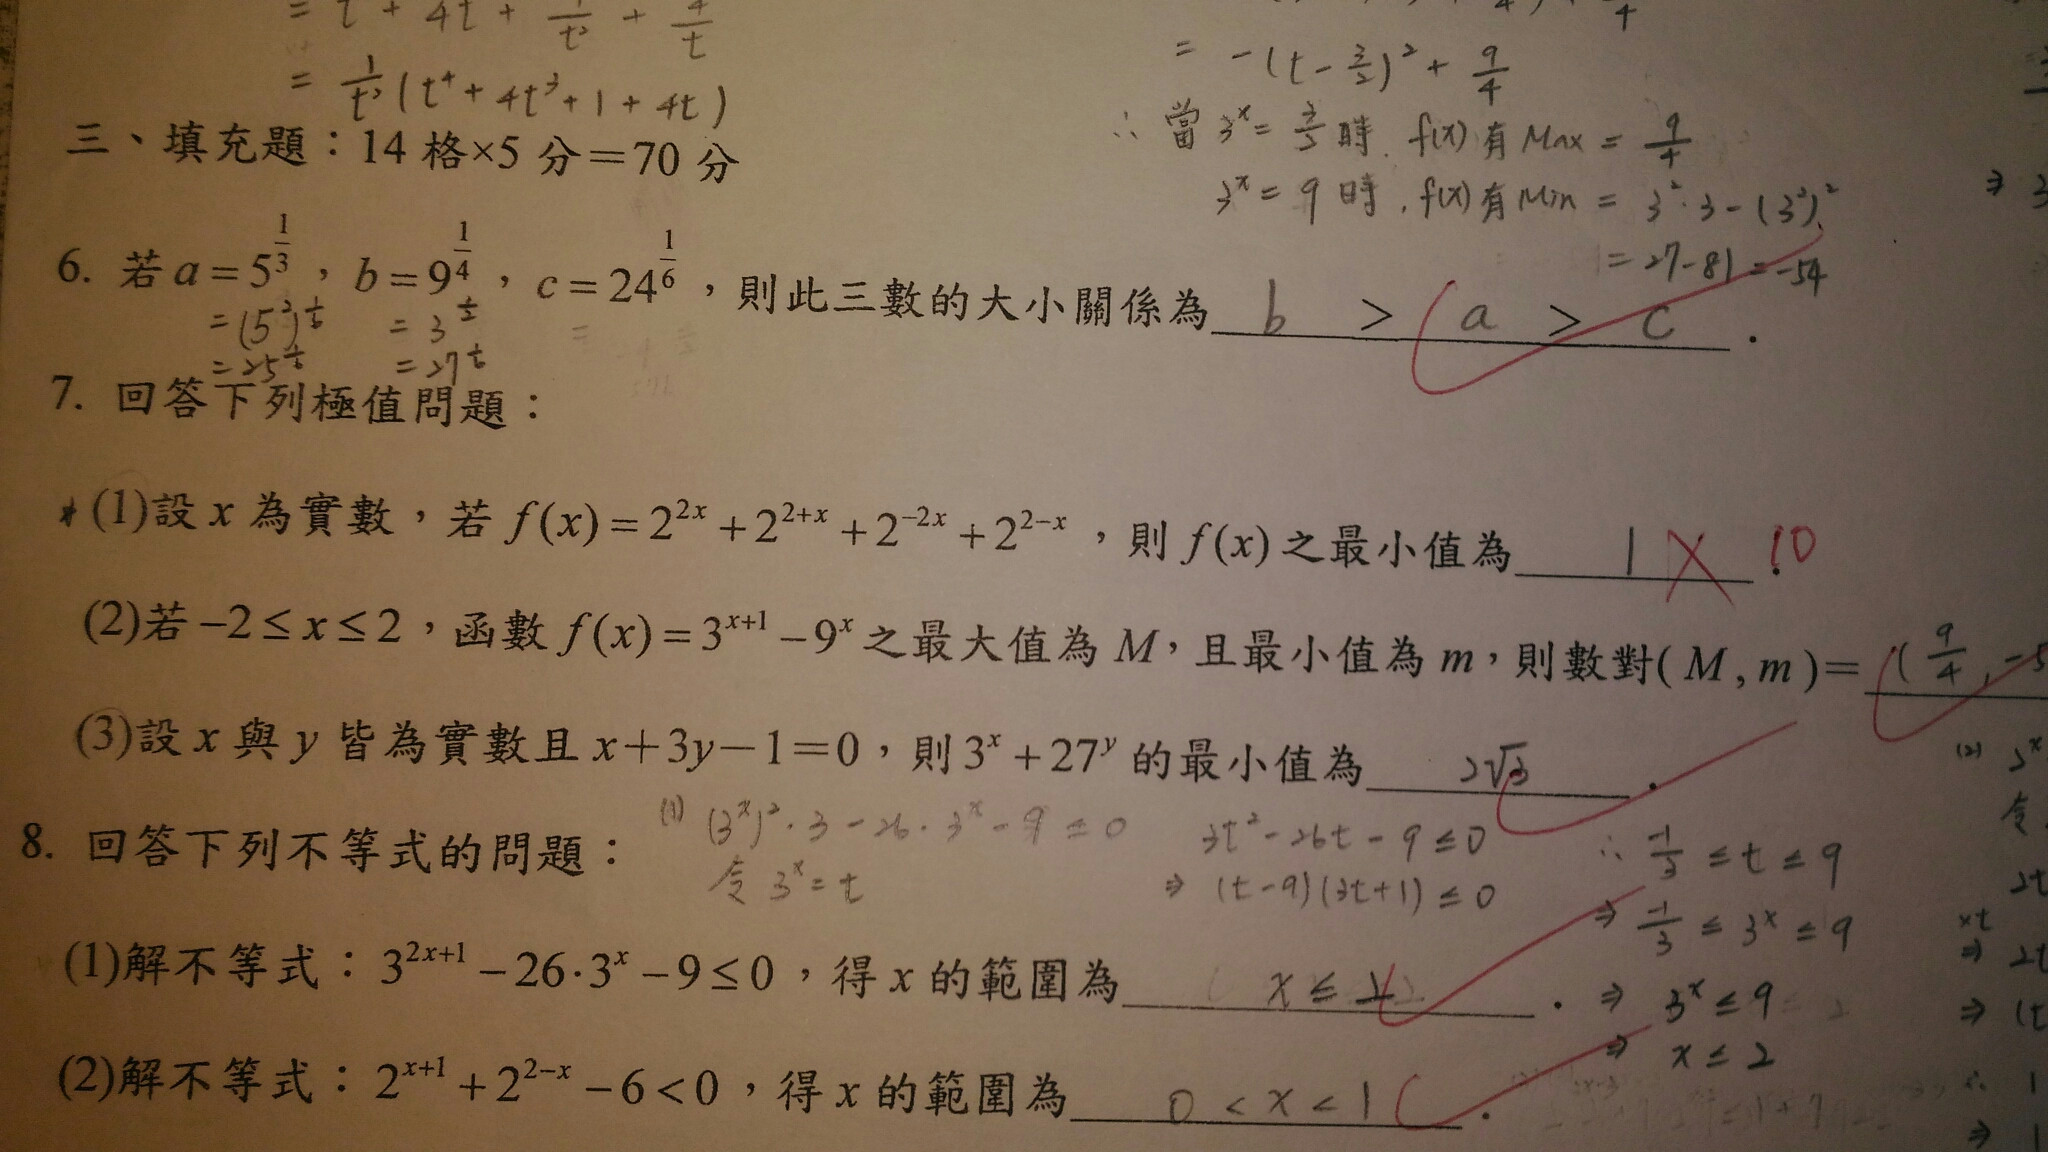 = t² + 4t + 1/t² + 4/t
= 1/t² (t⁴ + 4t³ + 1 + 4t)
= -(t - 3/2)² + 9/4
∴ 當 3ˣ = 3/2 時, f(x) 有 Max = 9/4
3ˣ = 9 時, f(x) 有 Min = 3²·3 - (3²)²
= 27 - 81 = -54
三、填充題：14 格×5 分＝70 分
6. 若 a = 5^(1/3)，b = 9^(1/4)，c = 24^(1/6)，則此三數的大小關係為 b > a > c .
= (5²)^(1/6) = 3^(1/2) =
= 25^(1/6) = 27^(1/6)
7. 回答下列極值問題：
* (1)設 x 為實數，若 f(x) = 2^(2x) + 2^(2+x) + 2^(-2x) + 2^(2-x)，則 f(x) 之最小值為 1 X . 10
(2)若 -2 ≤ x ≤ 2，函數 f(x) = 3^(x+1) - 9^x 之最大值為 M，且最小值為 m，則數對( M , m )= (9/4, -5
(3)設 x 與 y 皆為實數且 x＋3y－1＝0，則 3^x + 27^y 的最小值為 2√3 .
8. 回答下列不等式的問題：
(1) (3ˣ)²·3 - 26·3ˣ - 9 ≤ 0 3t² - 26t - 9 ≤ 0 ∴ -1/3 ≤ t ≤ 9
令 3ˣ = t ⇒ (t-9)(3t+1) ≤ 0
⇒ -1/3 ≤ 3ˣ ≤ 9
(1)解不等式：3^(2x+1) - 26·3^x - 9 ≤ 0，得 x 的範圍為 x ≤ 2 .
⇒ 3ˣ ≤ 9
⇒ x ≤ 2
(2)解不等式：2^(x+1) + 2^(2-x) - 6 < 0，得 x 的範圍為 0 < x < 1 .
(2) 3ˣ
令
2t
×t
⇒ 2t
⇒ (t
∴ 1
⇒ 1